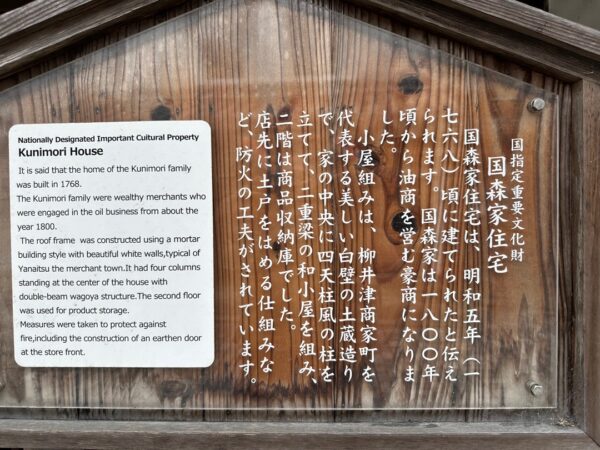 国指定重要文化財
国森家住宅
国森家住宅は、明和五年(一
七六八)頃に建てられたと伝え
られます。国森家は一八〇〇年
頃から油商を営む豪商になりま
した。
小屋組みは、柳井津商家町を
代表する美しい白壁の土蔵造り
で、家の中央に四天柱風の柱を
立てて、二重梁の和小屋を組み、
二階は商品収納庫でした。
店先に土戸をはめる仕組みな
ど、防火の工夫がされています。
Nationally Designated Important Cultural Property
Kunimori House
It is said that the home of the Kunimori family
was built in 1768.
The Kunimori family were wealthy merchants who
were engaged in the oil business from about the
year 1800.
The roof frame was constructed using a mortar
building style with beautiful white walls,typical of
Yanaitsu the merchant town.It had four columns
standing at the center of the house with
double-beam wagoya structure.The second floor
was used for product storage.
Measures were taken to protect against
fire,including the construction of an earthen door
at the store front.